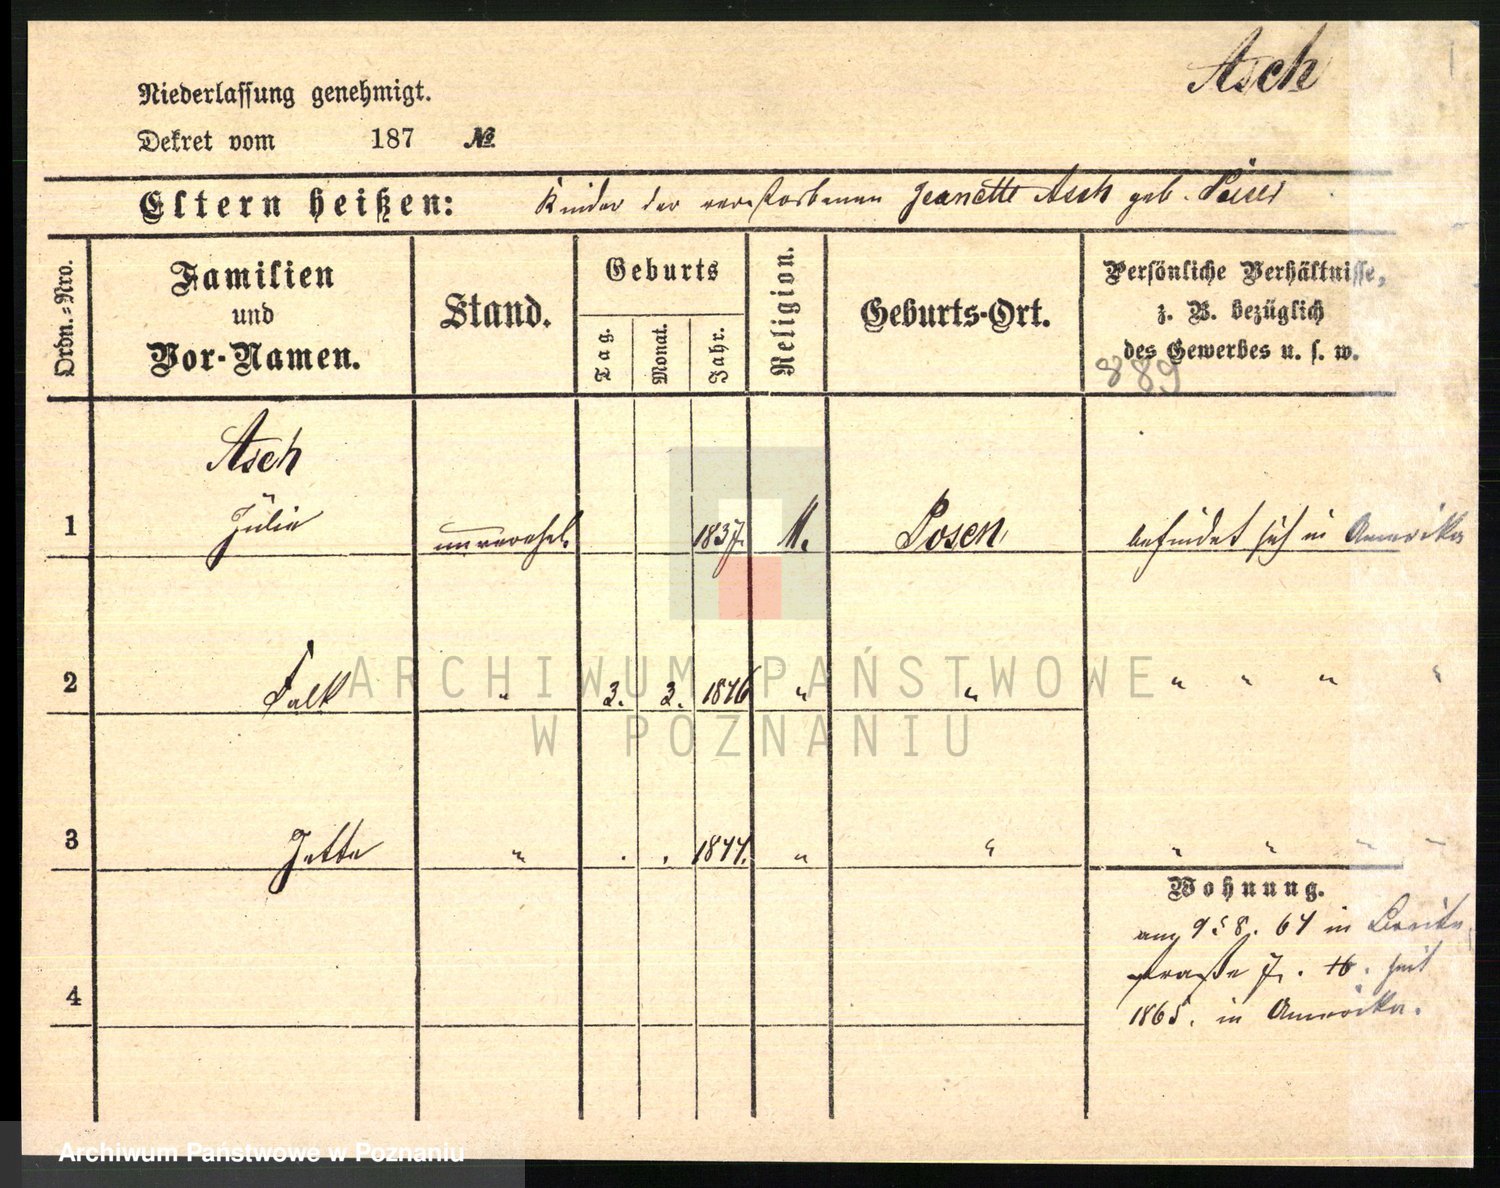 Asch
Niederlassung genehmigt.
Dekret vom 187 №
Eltern heißen: Kinder der verstorbenen Jeanette Asch geb. Peiser
Ordn.-Nro.
Familien
und
Vor-Namen.
Stand.
Geburts
Tag.
Monat.
Jahr.
Religion.
Geburts-Ort.
Persönliche Verhältnisse,
z. B. bezüglich
des Gewerbes u. s. w.
889
Asch
1 Julie unverehel. 1837. M. Posen befindet sich in Amerika
2 Falk " 3. 3. 1846 " " " " " "
3 Jette " . . 1844. " " " " " "
Wohnung.
4
64 in Breite
straße 7. 16. seit
1865. in Amerika.
ARCHIWUM PAŃSTWOWE
W POZNANIU
Archiwum Państwowe w Poznaniu